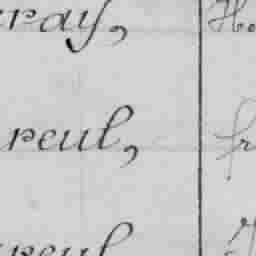 ray, H.
reul, fr
reul